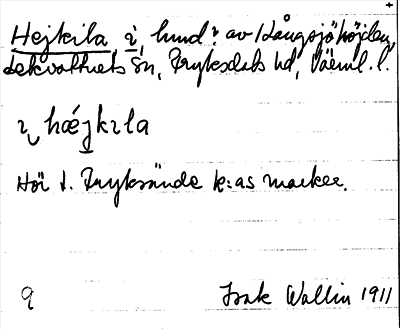 Hejkila i, lund? av Långsjöhöjden,
Lekvattnets Sn, Fryksdals hd, Värml. l.
ı hǽjkıla
Hör t. Fryksände k:as marker.
9
Isak Wallin 1911